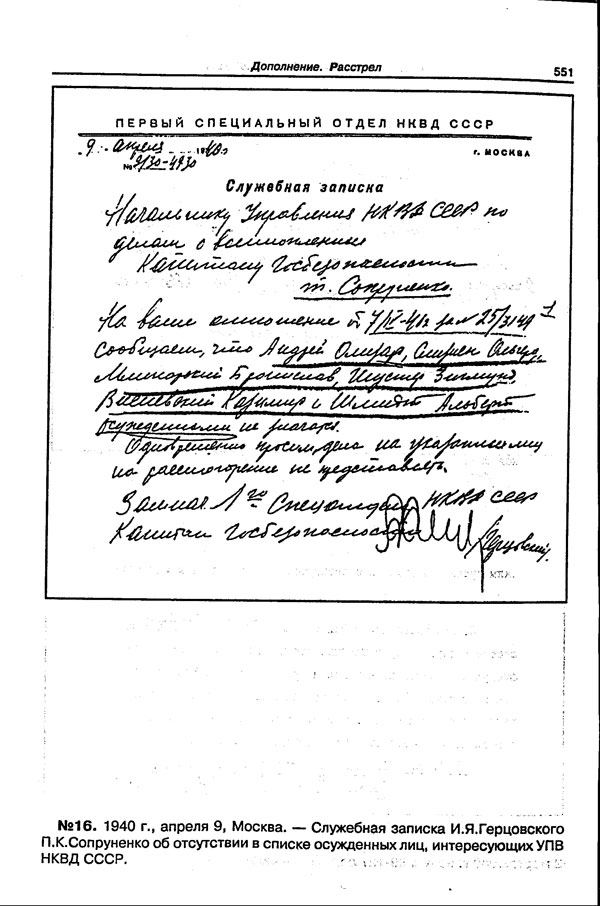 Дополнение. Расстрел
551
ПЕРВЫЙ СПЕЦИАЛЬНЫЙ ОТДЕЛ НКВД СССР
9. апреля 1940 г.
№ 9/30-4930
г. МОСКВА
Служебная записка
Начальнику Управления НКВД СССР по
делам о военнопленных
Капитану Госбезопасности
т. Сопруненко.
На ваше отношение от 7/IV-40г за № 25/3149
сообщаем, что Андзей Олизар,
Бронислав, Шустер Зигмунд,
Казимир и Шмидт Альберт
осужденными не значатся.
Одновременно просим, дела на указанных лиц
на рассмотрение не представлять.
Замнач. 1го Спецотдела НКВД СССР
Капитан Госбезопасности Герцовский.
№16. 1940 г., апреля 9, Москва. — Служебная записка И.Я.Герцовского
П.К.Сопруненко об отсутствии в списке осужденных лиц, интересующих УПВ
НКВД СССР.